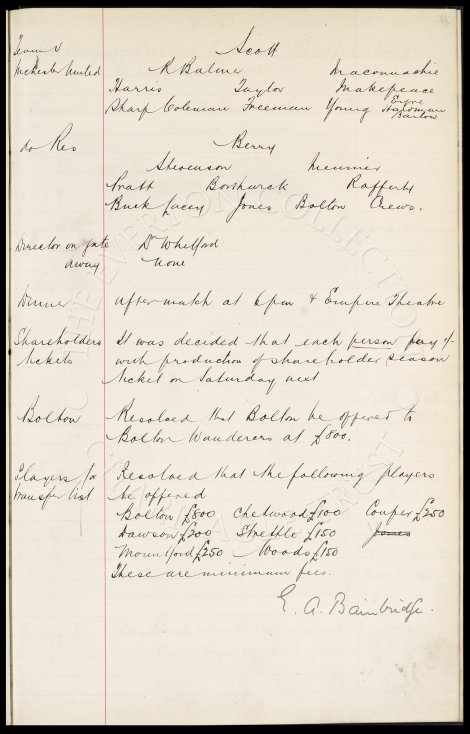 Team v Scott
Mchester United R Balmer Maconnachie
Harris Taylor Makepeace
Sharp Coleman Freeman Young Hardman
Barlow
do Res Berry
Stevenson Meunier
Pratt Borthwick Rafferty
Buck Lacey Jones Bolton Crews.
Director on gate Dr Whitford
away None
Dinner after match at 6pm & Empire Theatre
Shareholders It was decided that each person pay
tickets with production of shareholder season
ticket on Saturday next
Bolton Resolved that Bolton be offered to
Bolton Wanderers at £800.
Players for Resolved that the following players
transfer list be offered
Bolton £800 Chetwood £100 Couper £250
Dawson £200 Strettle £150 Jones
Mountford £250 Woods £150
These are minimum fees.
E. A. Bainbridge.
THE EVERTON COLLECTION